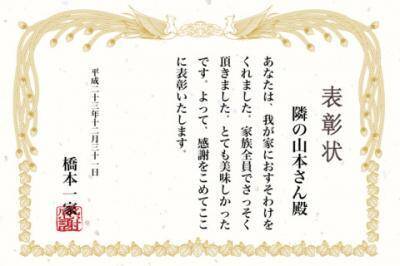 表彰状
隣の山本さん殿
あなたは、我が家におすそわけを
くれました。家族全員でさっそく
頂きました。とても美味しかった
です。よって、感謝をこめてここ
に表彰いたします。
平成二十三年十二月三十一日
橋本一家